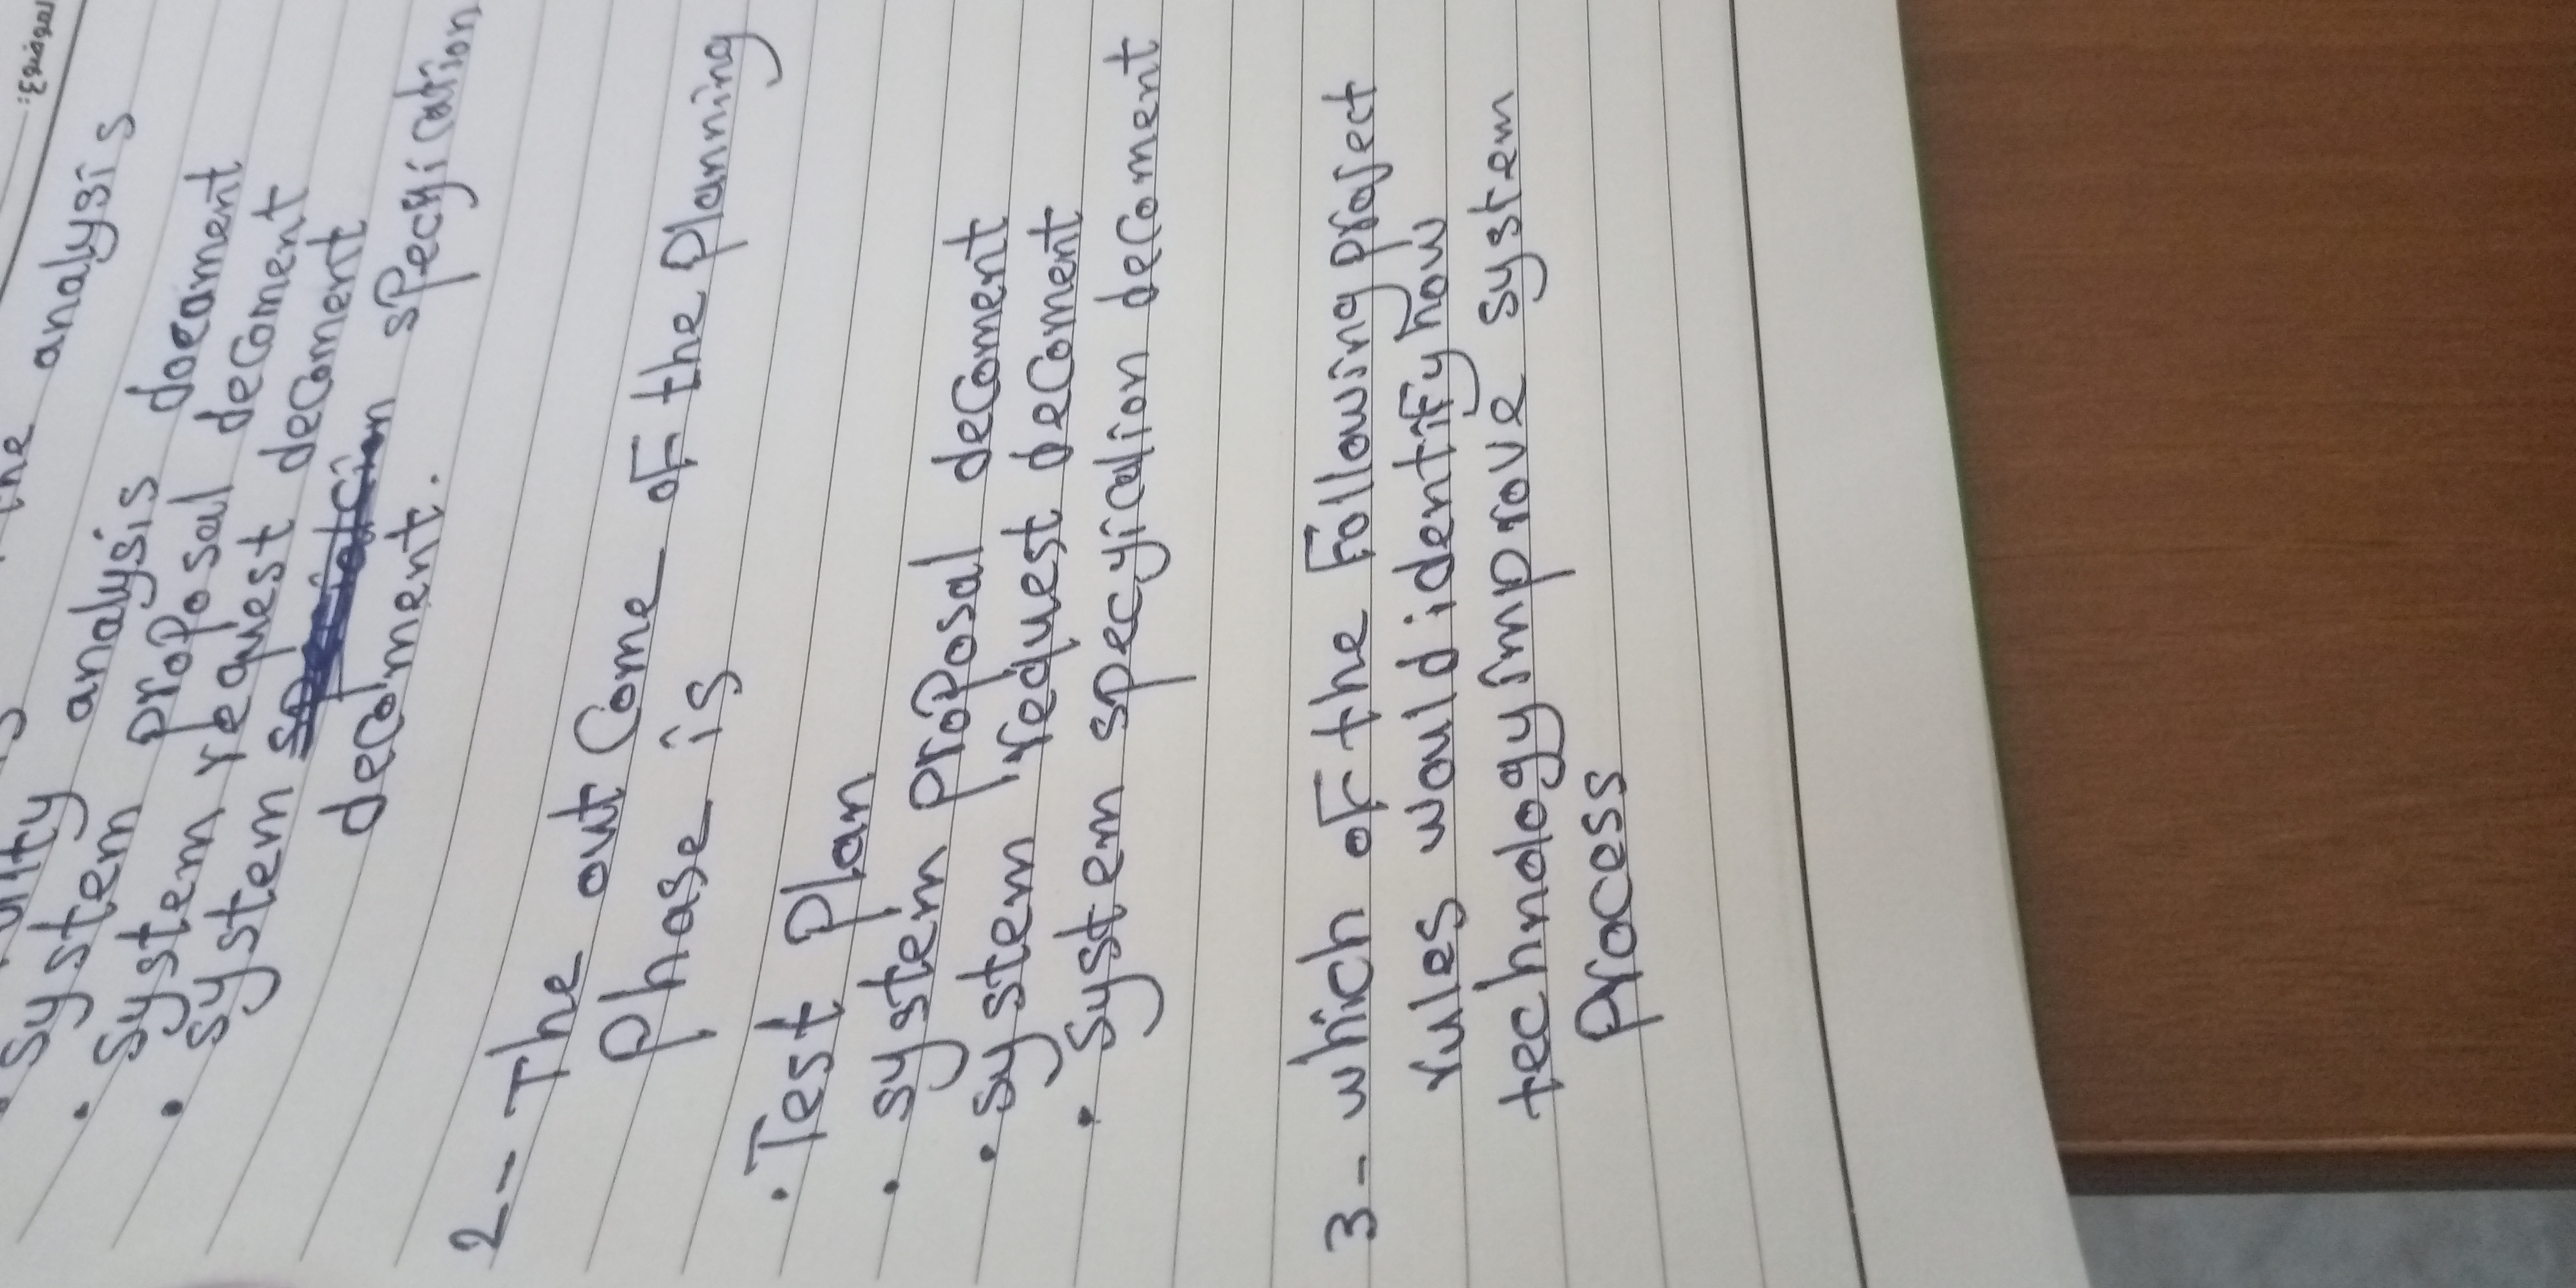 the analysis
• system analysis document
• system proposal decoment
• system request decoment
• system specyication
decoment.
2-- The out Come of the planning
phase is
• Test plan
• system proposal decoment
• system request decoment
• system specyication decoment
3 - which of the Following project
rules would identify how
technology improve system
process